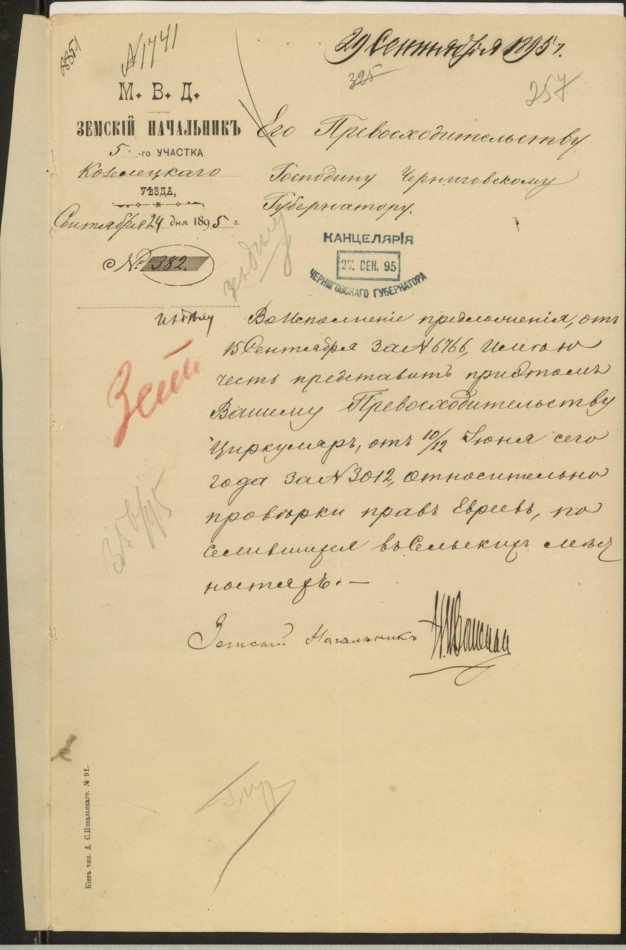 № 1741
29 Сентября 1895 г.
325
257
М. В. Д.
ЗЕМСКІЙ НАЧАЛЬНИКЪ
5-го УЧАСТКА
Козелецкаго
УѢЗДА,
Сентября 24 дня 1895 г.
№ 382.
Его Превосходительству
Господину Черниговскому
Губернатору.
КАНЦЕЛЯРІЯ
27. СЕН. 95
ЧЕРНИГОВСКАГО ГУБЕРНАТОРА
къ дѣлу
Во исполненіе предложенія, отъ
15 Сентября за № 6766, имѣю
честь представить при этомъ
Вашему Превосходительству
Циркуляръ, отъ 10/12 Іюня сего
года за № 3012, относительно
провѣрки правъ Евреевъ, по
селившихся въ сельскихъ мѣст
ностяхъ. —
Земскій Начальникъ
Кіевъ тип. Д. С. Повальскаго. № 91.